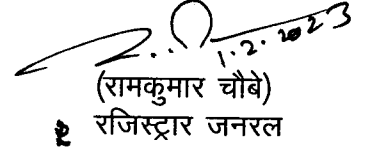 1.2.2023
(रामकुमार चौबे)
रजिस्ट्रार जनरल